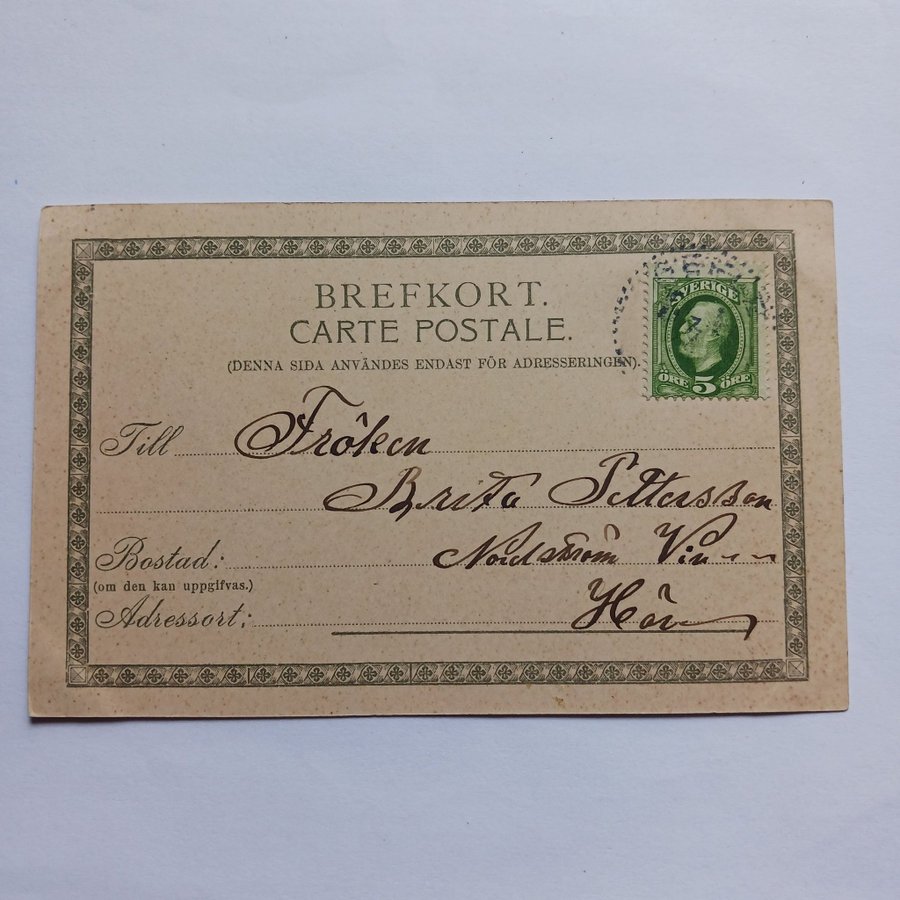 BREFKORT.
CARTE POSTALE.
(DENNA SIDA ANVÄNDES ENDAST FÖR ADRESSERINGEN).
SVERIGE
ÖRE 5 ÖRE
Till Fröken
Brita Pettersson
Bostad: Nordström
(om den kan uppgifvas.)
Adressort: